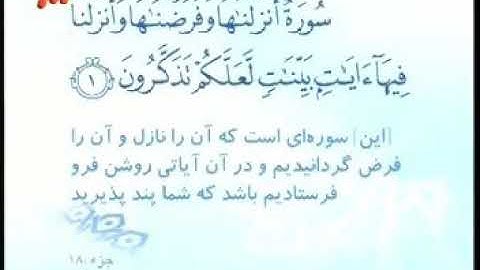 سُورَةٌ أَنزَلْنَٰهَا وَفَرَضْنَٰهَا وَأَنزَلْنَا
فِيهَآ ءَايَٰتٍۭ بَيِّنَٰتٍ لَّعَلَّكُمْ تَذَكَّرُونَ ﴿١﴾
[این] سوره‌ای است که آن را نازل و آن را
فرض گردانیدیم و در آن آیاتی روشن فرو
فرستادیم باشد که شما پند پذیرید
جزء ۱۸۰